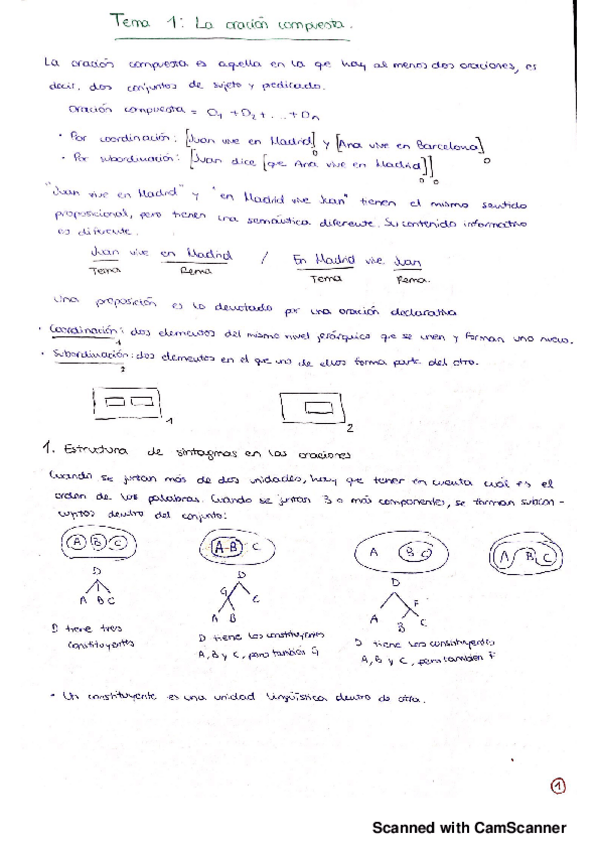 Tema 1: La oración compuesta.
La oración compuesta es aquella en la que hay al menos dos oraciones, es
decir, dos conjuntos de sujeto y predicado.
Oración compuesta = O1 + O2 + ... + On
· Por coordinación: [Juan vive en Madrid]o y [Ana vive en Barcelona]o
· Por subordinación: [Juan dice [que Ana vive en Madrid]o]o
"Juan vive en Madrid" y "en Madrid vive Juan" tienen el mismo sentido
proposicional, pero tienen una semántica diferente. Su contenido informativo
es diferente.
Juan vive en Madrid / En Madrid vive Juan
Tema Rema Tema Rema.
Una proposición es lo denotado por una oración declarativa
· Coordinación: dos elementos del mismo nivel jerárquico que se unen y forman uno nuevo.
1
· Subordinación: dos elementos en el que uno de ellos forma parte del otro.
2
1 2
1. Estructura de sintagmas en las oraciones
Cuando se juntan más de dos unidades, hay que tener en cuenta cuál es el
orden de las palabras. Cuando se juntan 3 o más componentes, se forman subcon-
juntos dentro del conjunto:
A B C A-B C A B C A B C
D D D
A B C G C F
A B A B C
D tiene tres
constituyentes
D tiene los constituyentes
A, B y C, pero también G
D tiene los constituyentes
A, B y C, pero también F
· Un constituyente es una unidad lingüística dentro de otra.
1
Scanned with CamScanner